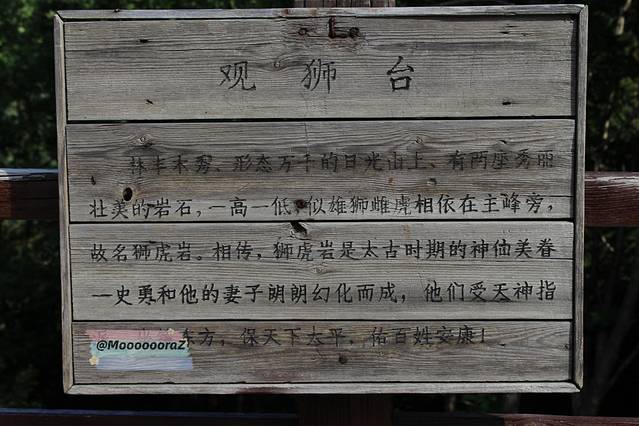 观狮台
林丰木秀、形态万千的日光山上、有两座秀丽
壮美的岩石,一高一低,似雄狮雌虎相依在主峰旁,
故名狮虎岩。相传,狮虎岩是太古时期的神仙美眷
一史勇和他的妻子朗朗幻化而成,他们受天神指
东方,保天下太平,佑百姓安康!
@MoooooooraZ